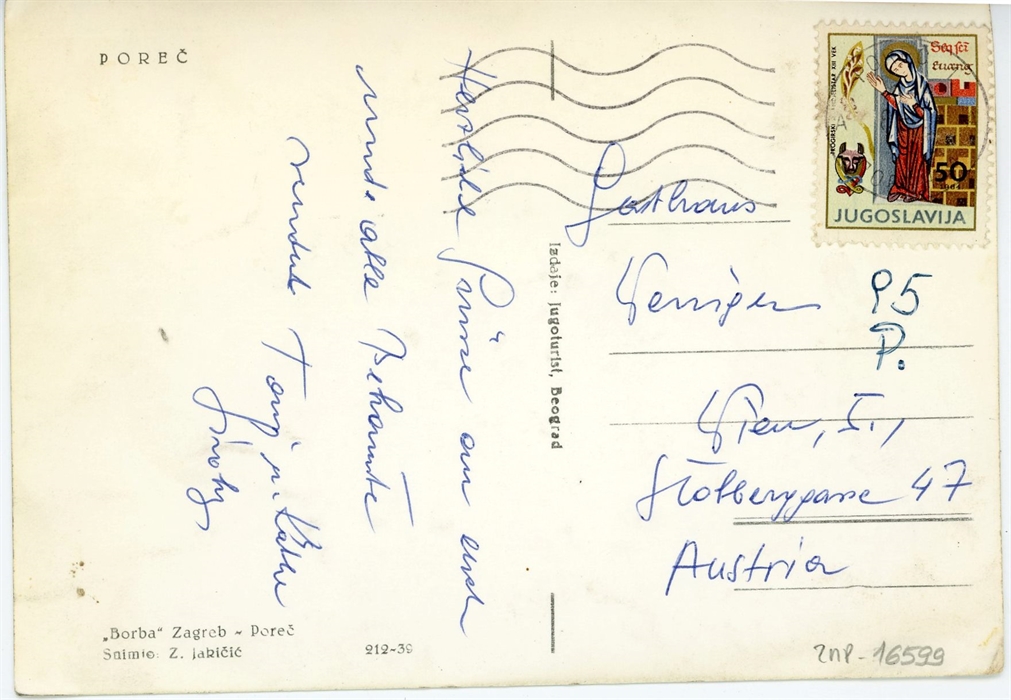 POREČ
Herzliche Grüsse an euch
und alle Bekannte
sendet
„Borba“ Zagreb ~ Poreč
Snimio: Z. Jakičić
212-39
Izdaje: Jugoturist, Beograd
50
1964
JUGOSLAVIJA
95
P.
Gasthaus
Wien,
Stolberggasse 47
Austria
ZNP-16599